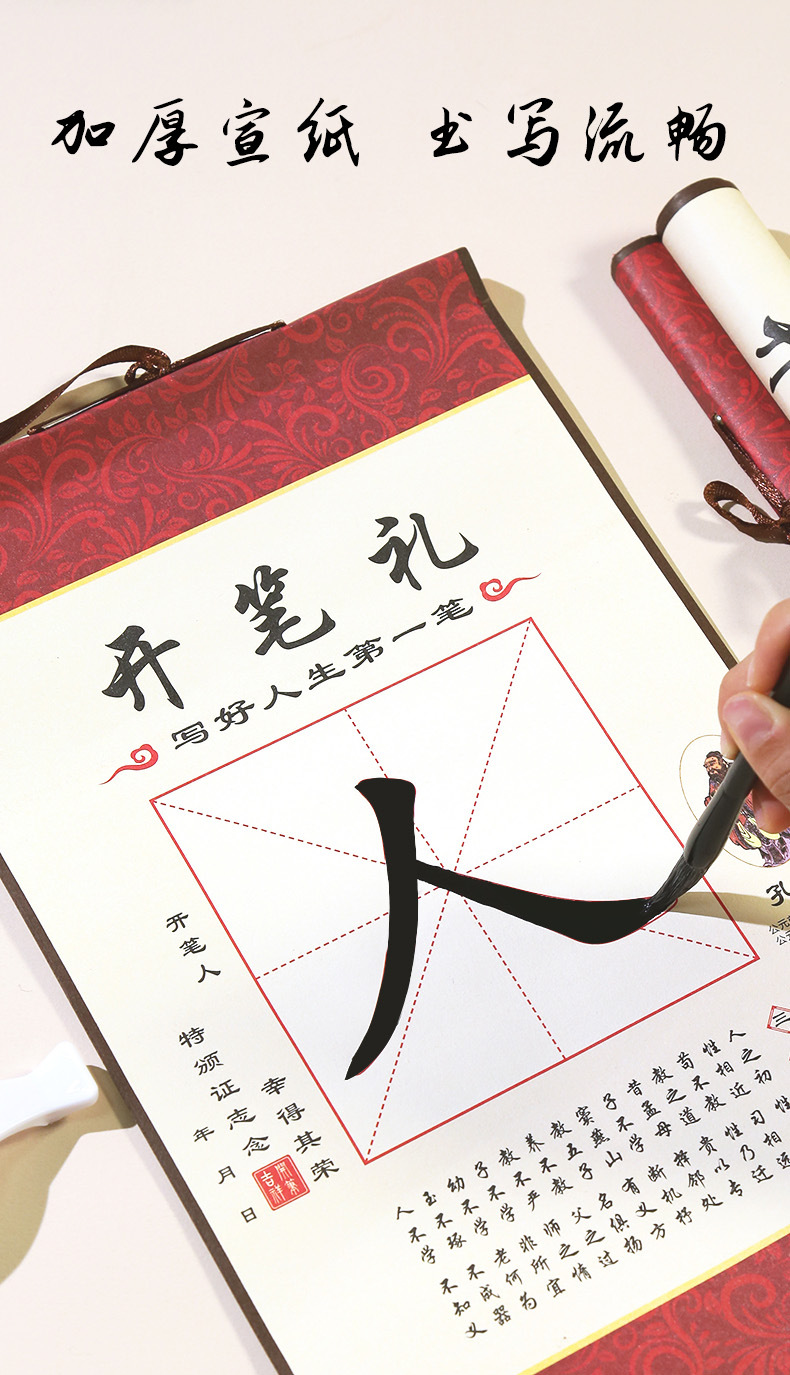 加厚宣纸 书写流畅
开笔礼
写好人生第一笔
人
孔
三
人之初 性
性相近 习相远
苟不教 性乃迁
教之道 贵以专
昔孟母 择邻处
子不学 断机杼
窦燕山 有义方
教五子 名俱扬
养不教 父之过
教不严 师之惰
子不学 非所宜
幼不学 老何为
玉不琢 不成器
人不学 不知义
开笔人
幸得其荣
特颁证志念
年 月 日
開筆吉祥